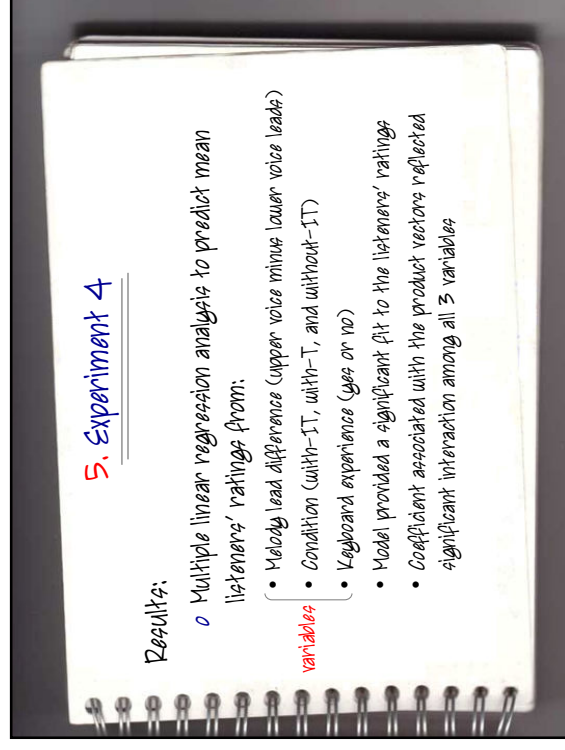 5. Experiment 4
Results:
o Multiple linear regression analysis to predict mean
listeners' ratings from:
• Melody lead difference (upper voice minus lower voice leads)
variables • Condition (with-IT, with-T, and without-IT)
• Keyboard experience (yes or no)
• Model provided a significant fit to the listeners' ratings
• Coefficient associated with the product vectors reflected
significant interaction among all 3 variables